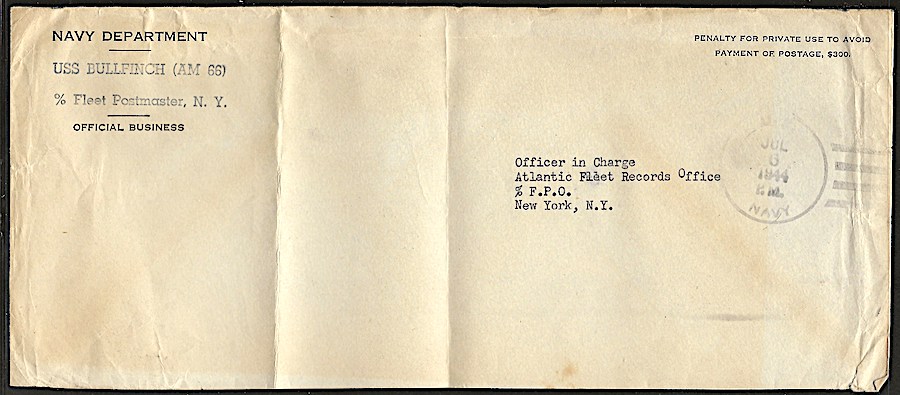 NAVY DEPARTMENT
USS BULLFINCH (AM 66)
% Fleet Postmaster, N. Y.
OFFICIAL BUSINESS
PENALTY FOR PRIVATE USE TO AVOID
PAYMENT OF POSTAGE, $300.
Officer in Charge
Atlantic Fleet Records Office
% F.P.O.
New York, N.Y.
JUL
6
1944
P.M.
NAVY